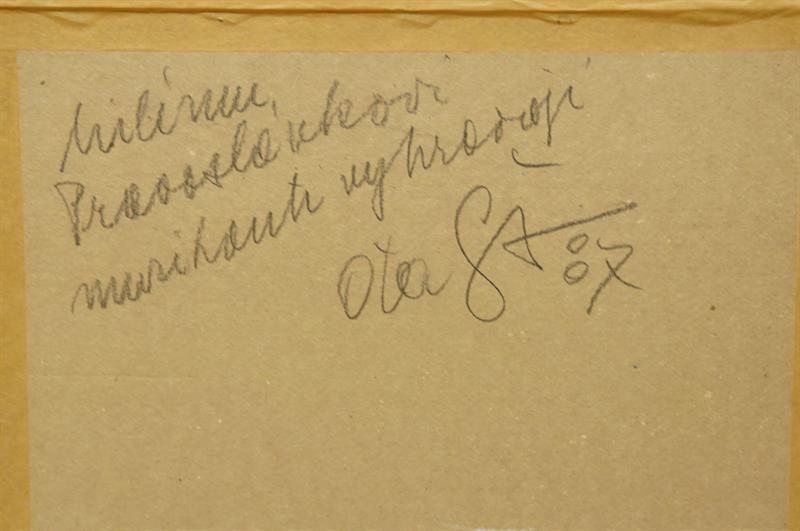 milému,
Pravoslávkovi
muzikanti vyhrávají
Ota
07